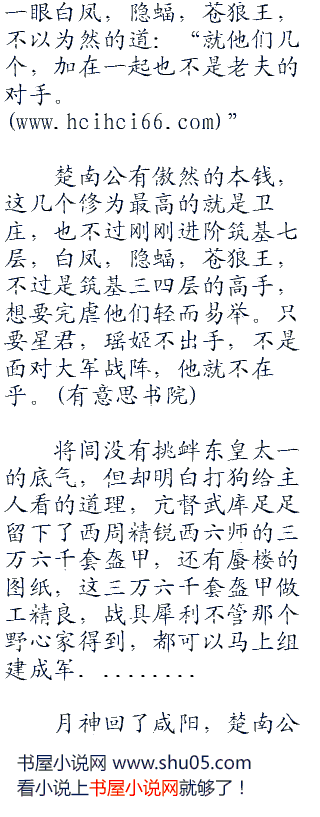 一眼白凤，隐蝠，苍狼王，
不以为然的道：“就他们几
个，加在一起也不是老夫的
对手。
(www.hcihci66.com)”
楚南公有傲然的本钱，
这几个修为最高的就是卫
庄，也不过刚刚进阶筑基七
层，白凤，隐蝠，苍狼王，
不过是筑基三四层的高手，
想要完虐他们轻而易举。只
要星君，瑶姬不出手，不是
面对大军战阵，他就不在
乎。(有意思书院)
将闾没有挑衅东皇太一
的底气，但却明白打狗给主
人看的道理，亢督武库足足
留下了西周精锐西六师的三
万六千套盔甲，还有蜃楼的
图纸，这三万六千套盔甲做
工精良，战具犀利不管那个
野心家得到，都可以马上组
建成军．．．．．．．．．
月神回了咸阳，楚南公
书屋小说网 www.shu05.com
看小说上书屋小说网就够了！